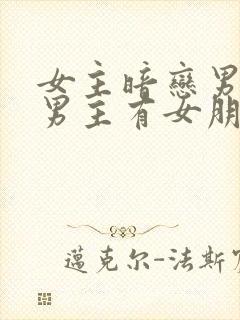 女主暗戀男
男主有女朋
邁克尔-法斯